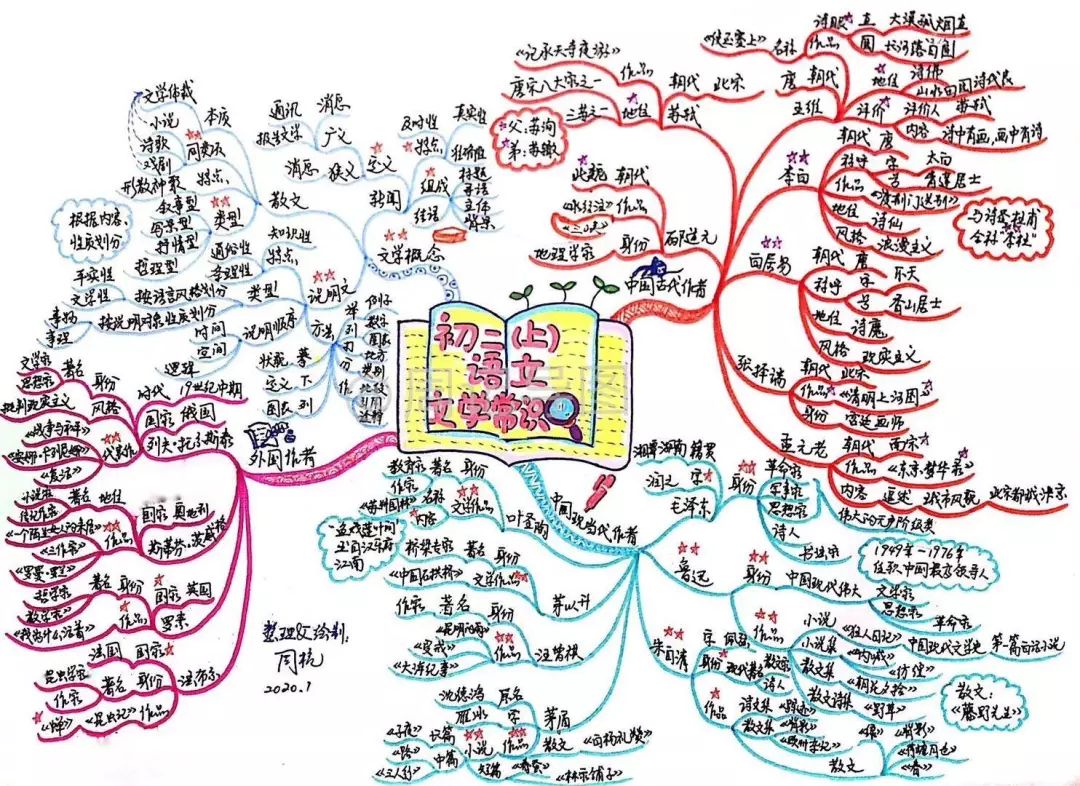 初二(上)
语文
文学常识
文学概念
散文
本质
文学体裁
同类项
小说
诗歌
戏剧
特点
形散神聚
类型
叙事型
写景型
抒情型
哲理型
根据内容,
性质划分
新闻
定义
广义
消息
通讯
报告文学
狭义
消息
特点
及时性
真实性
准确性
组成
标题
导语
主体
背景
结语
说明文
特点
知识性
通俗性
条理性
类型
按语言风格划分
平实性
文学性
按说明对象性质划分
事物
事理
说明顺序
时间
空间
逻辑
方法
举
例子
列
数字
图表
打
比方
分
类别
作
比较
引用
诠释
摹
状貌
下
定义
列
图表
中国古代作者
苏轼
朝代
北宋
作品
《记承天寺夜游》
地位
唐宋八大家之一
三苏之一
父:苏洵
弟:苏辙
郦道元
朝代
北魏
作品
《水经注》
《三峡》
身份
地理学家
王维
作品
名称
《使至塞上》
诗眼
直
大漠孤烟直
圆
长河落日圆
朝代
唐
地位
诗佛
山水田园诗代表
评价
评价人
苏轼
内容
诗中有画,画中有诗
李白
朝代
唐
称呼
字
太白
号
青莲居士
作品
《渡荆门送别》
地位
诗仙
风格
浪漫主义
与诗圣杜甫
合称"李杜"
白居易
朝代
唐
称呼
字
乐天
号
香山居士
地位
诗魔
风格
现实主义
张择端
朝代
北宋
作品
《清明上河图》
身份
宫廷画师
孟元老
朝代
南宋
作品
《东京梦华录》
内容
追述
城市风貌
北宋都城汴京
外国作者
列夫·托尔斯泰
时代
19世纪中期
国家
俄国
身份
著名
文学家
思想家
风格
批判现实主义
代表作
《战争与和平》
《安娜·卡列尼娜》
《复活》
斯蒂芬·茨威格
国家
奥地利
地位
著名
小说家
传记作家
作品
《一个陌生女人的来信》
《三作家》
《罗曼·罗兰》
罗素
国家
英国
身份
著名
哲学家
数学家
作品
《我为什么活着》
法布尔
国家
法国
身份
著名
昆虫学家
作家
作品
《昆虫记》
《蝉》
中国现当代作者
叶圣陶
身份
著名
教育家
作家
文学作品
名称
《苏州园林》
内容
茅以升
身份
著名
桥梁专家
文学作品
《中国石拱桥》
汪曾祺
身份
著名
作家
作品
《昆明的雨》
《受戒》
《大淖纪事》
茅盾
原名
沈德鸿
字
雁冰
作品
小说
长篇
《子夜》
中篇
《路》
《三人行》
短篇
《春蚕》
《林家铺子》
散文
《白杨礼赞》
毛泽东
籍贯
湖南湘潭
字
润之
身份
革命家
军事家
思想家
伟大的无产阶级
诗人
书法家
1949年-1976年
任职中国最高领导人
鲁迅
身份
中国现代伟大
文学家
思想家
革命家
作品
小说
《狂人日记》
中国现代文学史
第一篇白话小说
小说集
《呐喊》
《彷徨》
散文集
《朝花夕拾》
散文诗集
《野草》
散文:
《藤野先生》
朱自清
字
佩弦
身份
现代著名
散文家
诗人
作品
诗文集
《踪迹》
散文集
《背影》
《欧游杂记》
散文
《绿》
《背影》
《荷塘月色》
《春》
整理&绘制:
周杭
2020.1